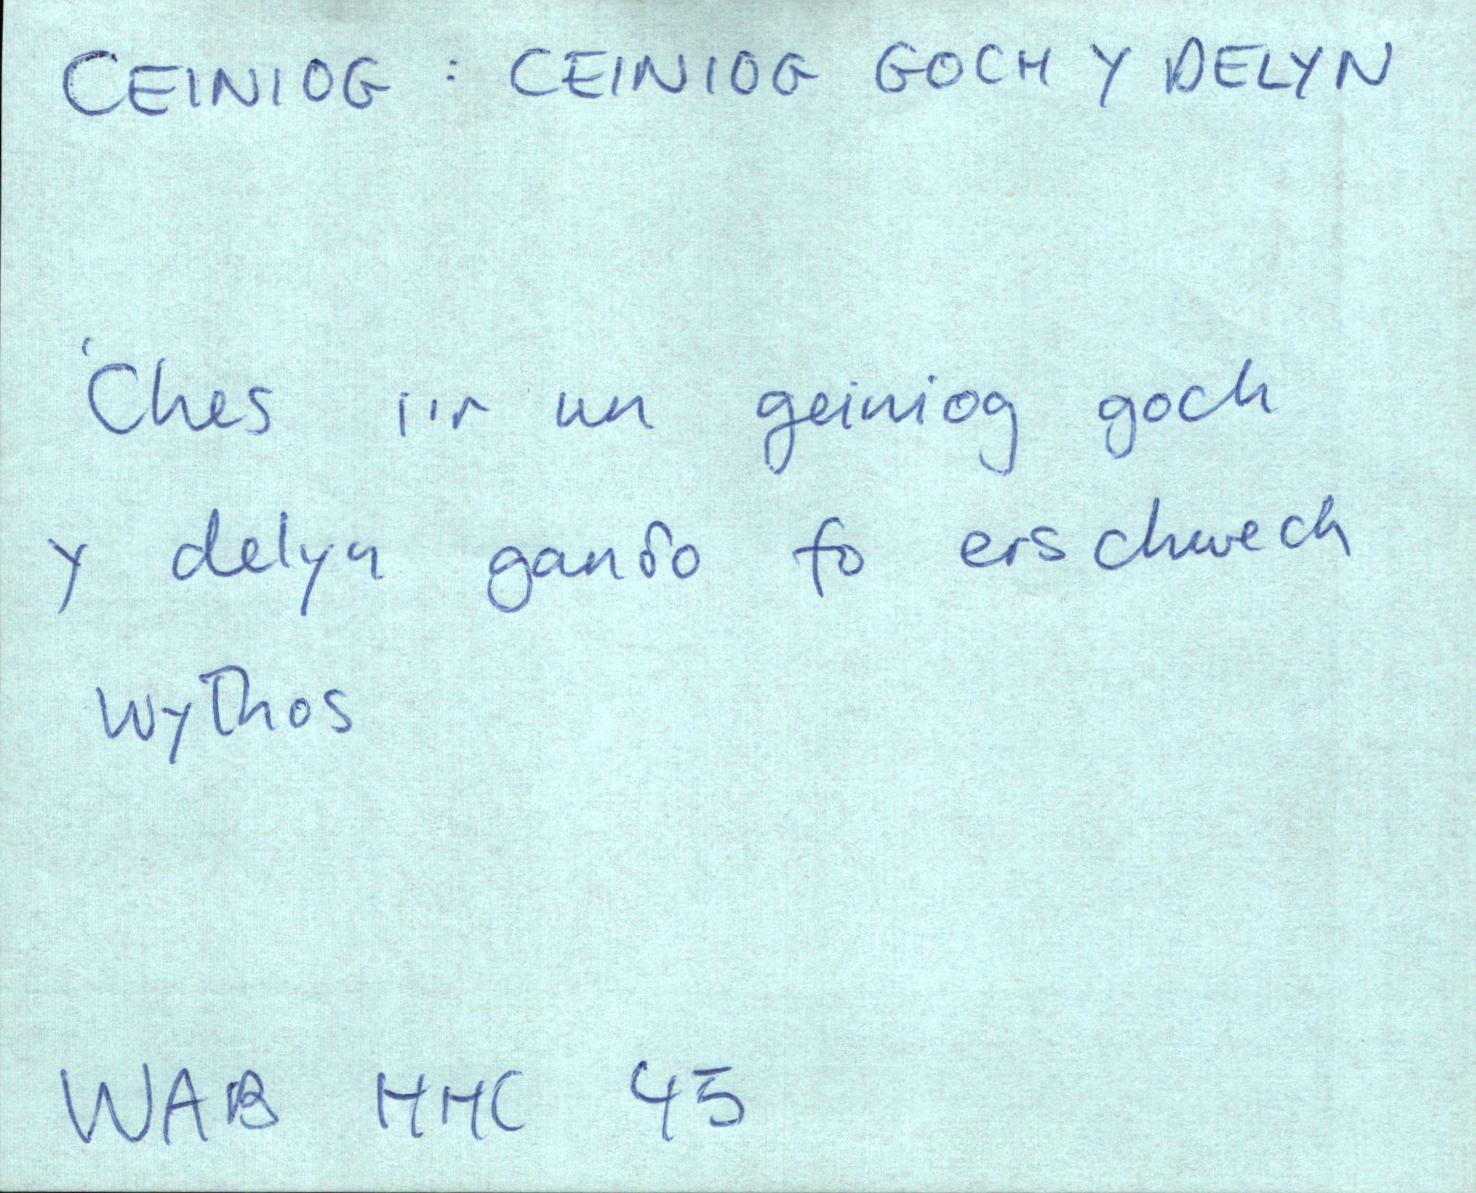 CEINIOG : CEINIOG GOCH Y DELYN
'Ches i'r un geiniog goch
y delyn ganδo fo ers chwech
wythos
WAB HHC 45